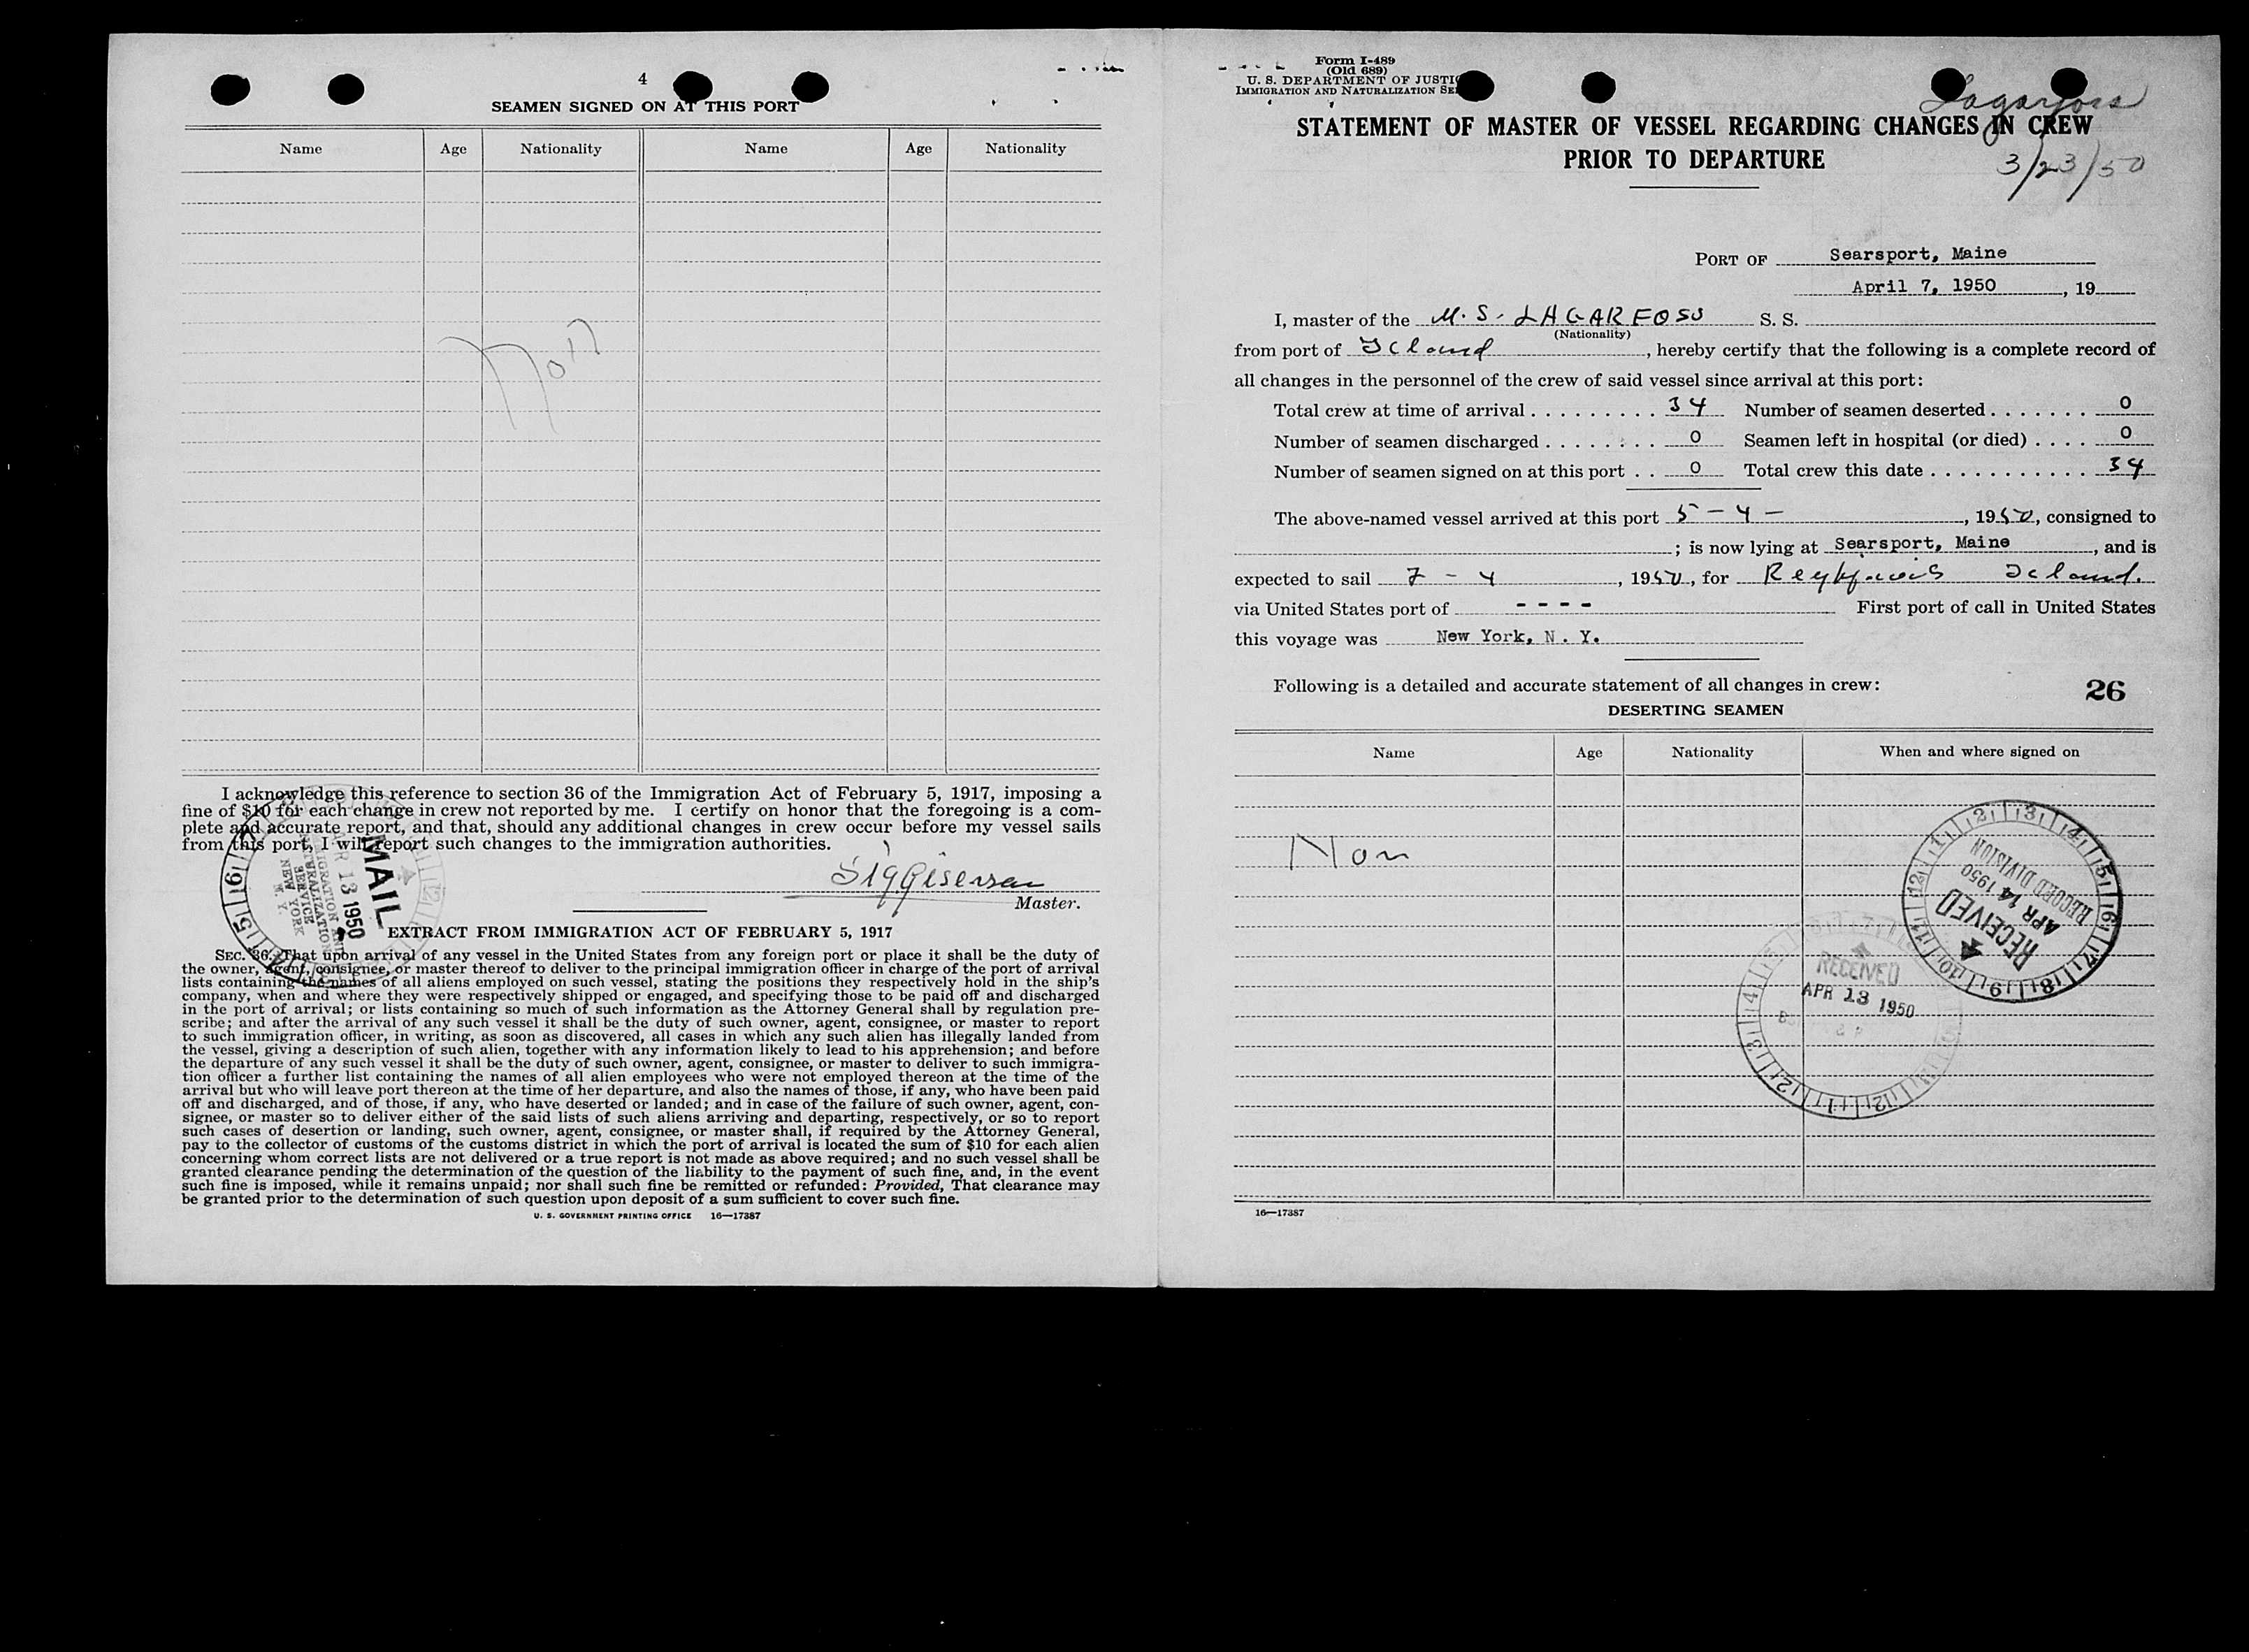 4
SEAMEN SIGNED ON AT THIS PORT
Name Age Nationality Name Age Nationality
Non
I acknowledge this reference to section 36 of the Immigration Act of February 5, 1917, imposing a
fine of $10 for each change in crew not reported by me. I certify on honor that the foregoing is a com-
plete and accurate report, and that, should any additional changes in crew occur before my vessel sails
from this port, I will report such changes to the immigration authorities.
Master.
MAIL
APR 13 1950
IMMIGRATION AND
NATURALIZATION
SERVICE
NEW YORK
N. Y.
EXTRACT FROM IMMIGRATION ACT OF FEBRUARY 5, 1917
SEC. 36. That upon arrival of any vessel in the United States from any foreign port or place it shall be the duty of
the owner, agent, consignee, or master thereof to deliver to the principal immigration officer in charge of the port of arrival
lists containing the names of all aliens employed on such vessel, stating the positions they respectively hold in the ship's
company, when and where they were respectively shipped or engaged, and specifying those to be paid off and discharged
in the port of arrival; or lists containing so much of such information as the Attorney General shall by regulation pre-
scribe; and after the arrival of any such vessel it shall be the duty of such owner, agent, consignee, or master to report
to such immigration officer, in writing, as soon as discovered, all cases in which any such alien has illegally landed from
the vessel, giving a description of such alien, together with any information likely to lead to his apprehension; and before
the departure of any such vessel it shall be the duty of such owner, agent, consignee, or master to deliver to such immigra-
tion officer a further list containing the names of all alien employees who were not employed thereon at the time of the
arrival but who will leave port thereon at the time of her departure, and also the names of those, if any, who have been paid
off and discharged, and of those, if any, who have deserted or landed; and in case of the failure of such owner, agent, con-
signee, or master so to deliver either of the said lists of such aliens arriving and departing, respectively, or so to report
such cases of desertion or landing, such owner, agent, consignee, or master shall, if required by the Attorney General,
pay to the collector of customs of the customs district in which the port of arrival is located the sum of $10 for each alien
concerning whom correct lists are not delivered or a true report is not made as above required; and no such vessel shall be
granted clearance pending the determination of the question of the liability to the payment of such fine, and, in the event
such fine is imposed, while it remains unpaid; nor shall such fine be remitted or refunded: Provided, That clearance may
be granted prior to the determination of such question upon deposit of a sum sufficient to cover such fine.
U. S. GOVERNMENT PRINTING OFFICE 16—17387
Form I-489
(Old 689)
U. S. DEPARTMENT OF JUSTI
IMMIGRATION AND NATURALIZATION SE
Lagarfoss
STATEMENT OF MASTER OF VESSEL REGARDING CHANGES IN CREW
PRIOR TO DEPARTURE
3/23/50
PORT OF Searsport, Maine
April 7, 1950, 19
I, master of the M.S. LAGARFOSS S. S.
(Nationality)
from port of Iceland, hereby certify that the following is a complete record of
all changes in the personnel of the crew of said vessel since arrival at this port:
Total crew at time of arrival . . . . . . . . . 34 Number of seamen deserted . . . . . . . 0
Number of seamen discharged . . . . . . . . 0 Seamen left in hospital (or died) . . . . 0
Number of seamen signed on at this port . . 0 Total crew this date . . . . . . . . . . . 34
The above-named vessel arrived at this port 5 - 4 -, 1950, consigned to
; is now lying at Searsport, Maine, and is
expected to sail 7 - 4, 1950, for Reykjavik Iceland.
via United States port of - - - - First port of call in United States
this voyage was New York, N. Y.
Following is a detailed and accurate statement of all changes in crew:
26
DESERTING SEAMEN
Name Age Nationality When and where signed on
Non
RECEIVED
APR 14 1950
RECORD DIVISION
RECEIVED
APR 13 1950
16—17387